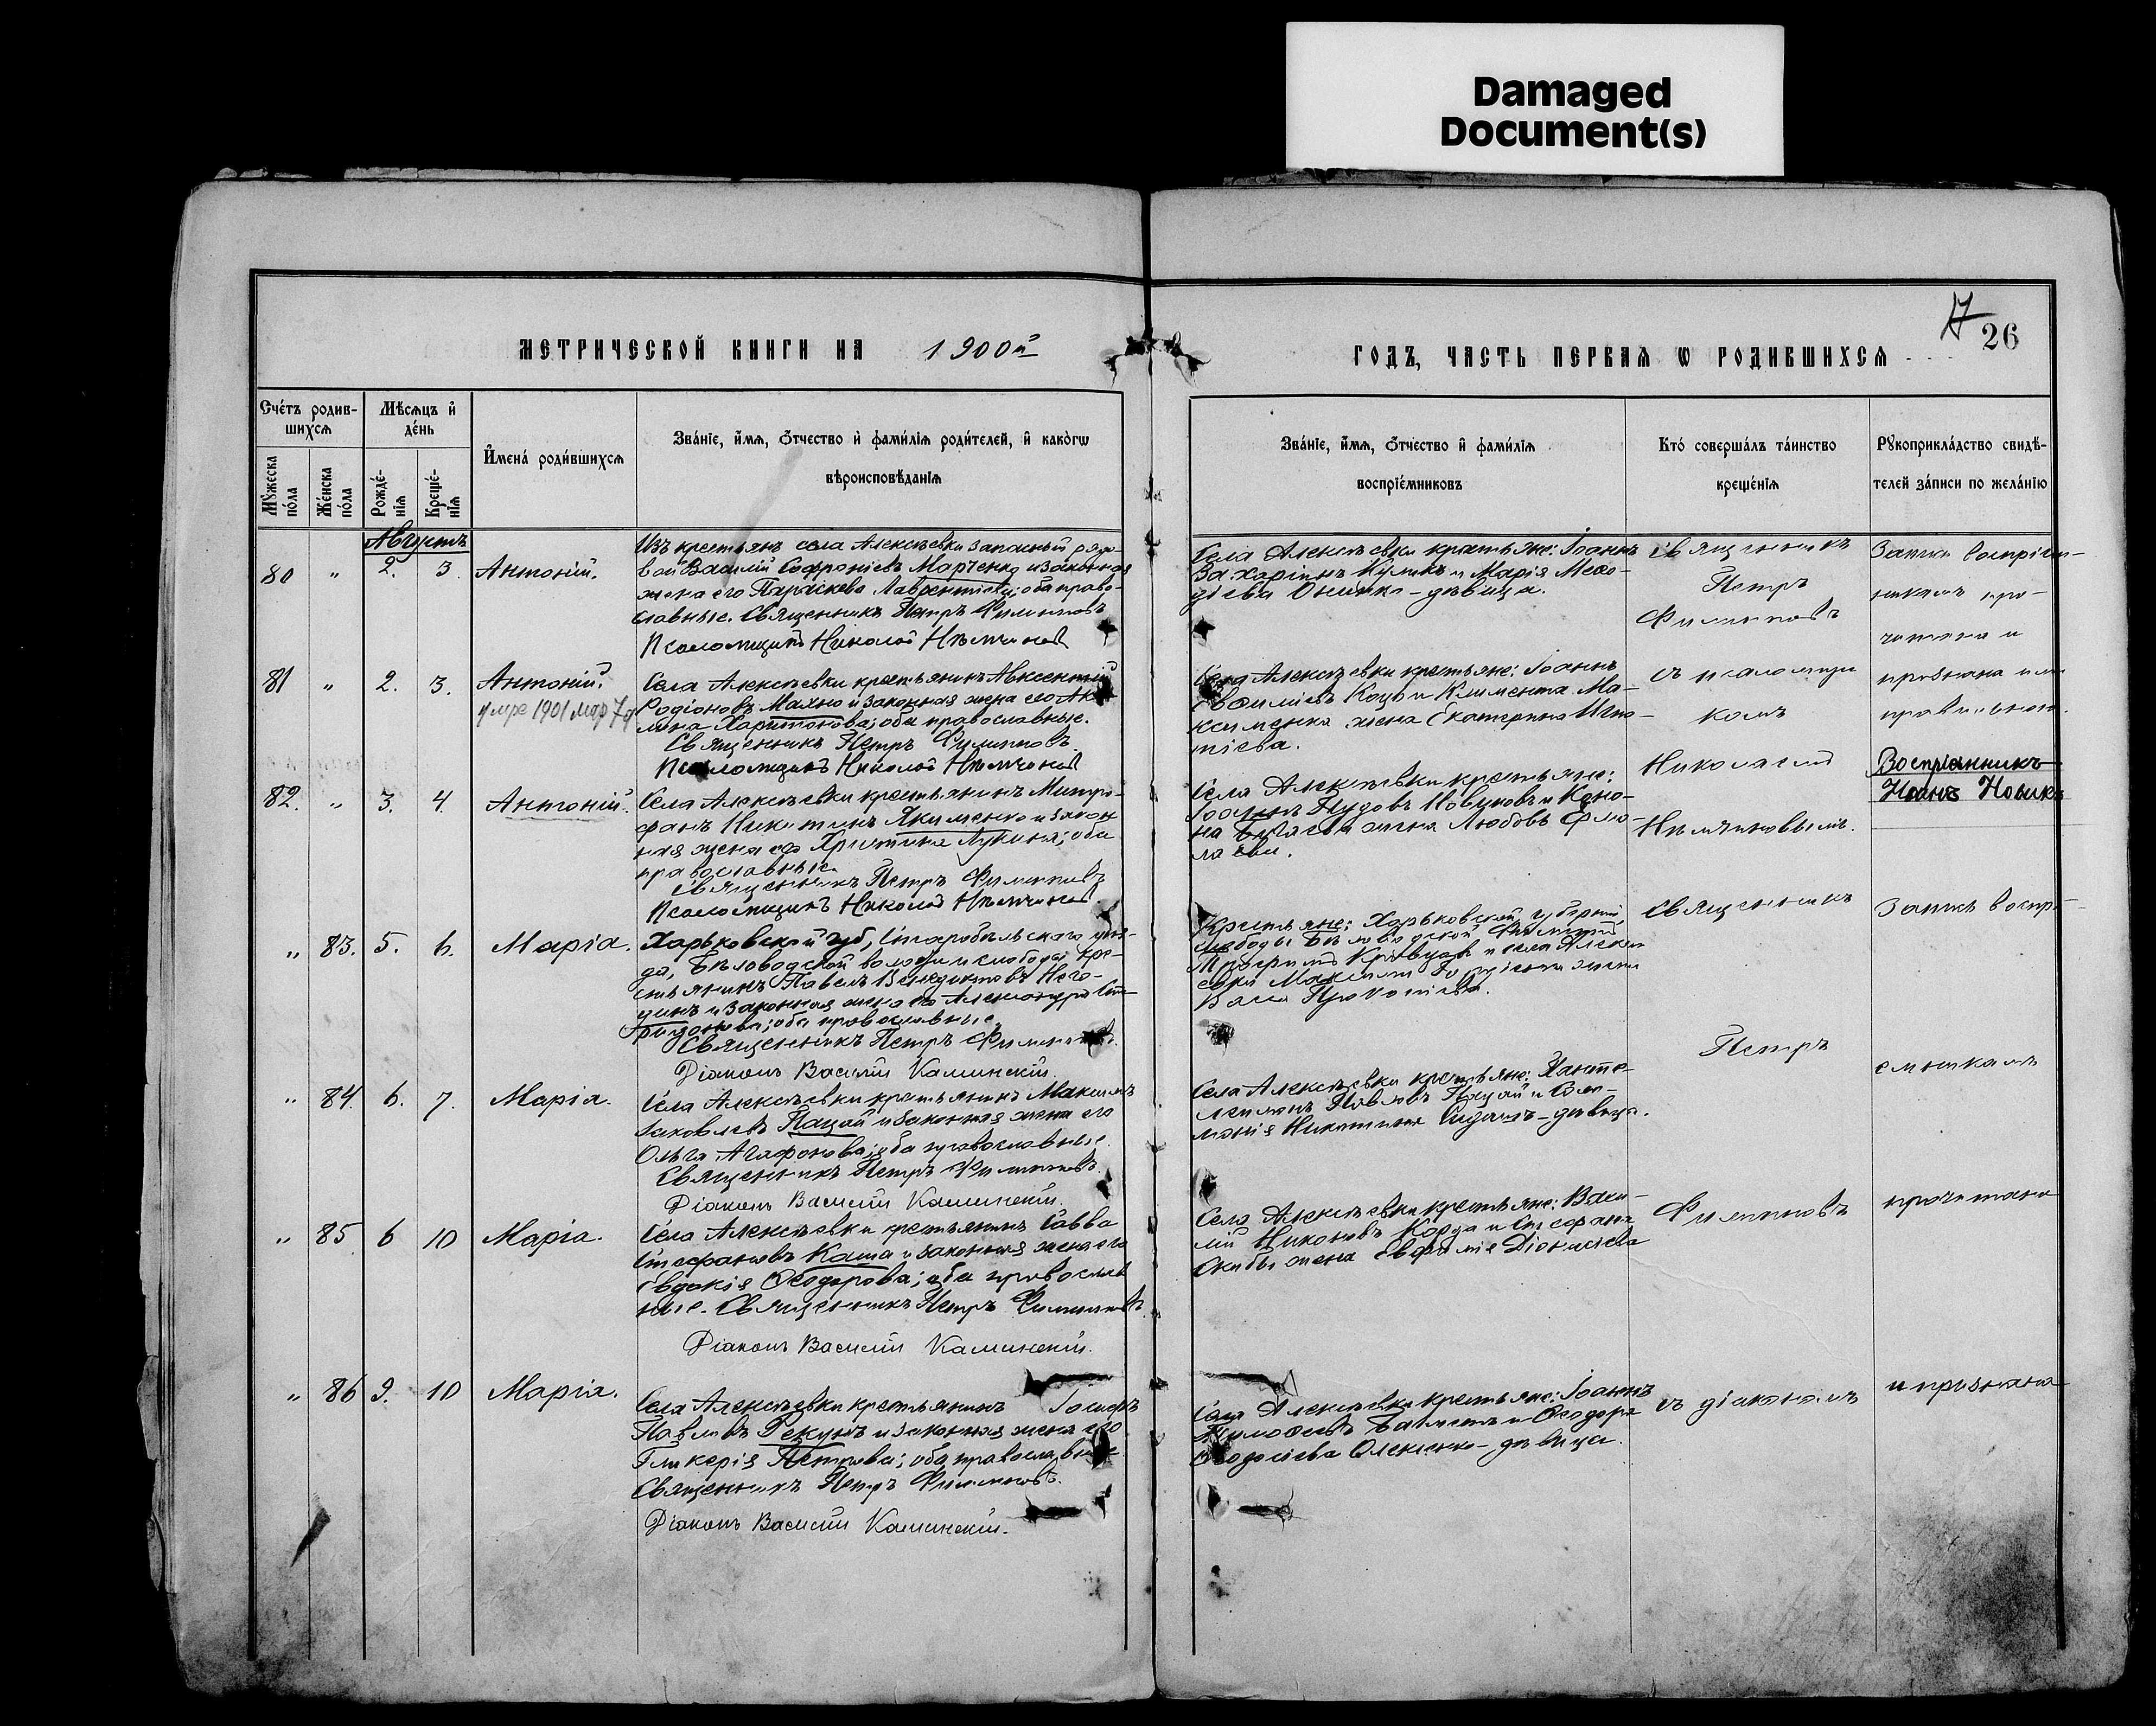 Damaged
Document(s)
17
26
МЕТРИЧЕСКОЙ КНИГИ НА 1900й
ГОДЪ, ЧАСТЬ ПЕРВАѦ Ѡ РОДИВШИХСѦ
Сче́тъ родив-
шихсѧ
Мꙋ́жеска по́ла
Же́нска по́ла
Мѣ́сѧцъ и҆ де́нь
Рожде́-нїѧ
Креще́-нїѧ
И҆мена̀ роди́вшихсѧ
Зва́нїе, и҆́мѧ, ѻ҆́тчество и҆ фами́лїѧ роди́телей, и҆ како́гѡ
вѣроисповѣ́данїѧ
Зва́нїе, и҆́мѧ, ѻ҆́тчество и҆ фами́лїѧ
воспрїе́мниковъ
Кто̀ соверша́лъ та́инство
креще́нїѧ
Рꙋкоприкла́дство свидѣ́-
телей за́писи по жела́нїю
Августъ
80 " 2. 3. Антоній.
Изъ крестьянъ села Алексѣевки запасный рядо-
вой Василій Софроніевъ Марченко и законная
жена его Параскева Лаврентіева; оба право-
славные. Священникъ Петръ Филипповъ
Псаломщикъ Николай Нѣмчинов
Села Алексѣевки крестьяне: Іоаннъ
Захаріинъ Куликъ и Марія Меѳо-
діева Онипко - дѣвица.
Священникъ
Петръ
Филипповъ
съ псаломщи
комъ
Николаемъ
Нѣмчиновымъ.
Запись воспріем-
никамъ про-
читана и
признана или
правильною.
Воспріемникъ
Иоанъ Новикъ
81 " 2. 3. Антоній.
умре 1901 мар 7д
Села Алексѣевки крестьянинъ Авксентій
Родіоновъ Махно и законная жена его Аки
лина Харитонова; оба православные.
Священникъ Петръ Филипповъ.
Псаломщикъ Николай Нѣмчинов
Села Алексѣевки крестьяне: Іоаннъ
Коцъ и Климента Ма-
ксименка жена Екатерина Игна-
тіева.
82. " 3. 4. Антоній.
Села Алексѣевки крестьянинъ Митро-
фанъ Никитинъ Якименко и закон
ная жена его Христина Лукина; оба
православные.
Священникъ Петръ Филипповъ
Псаломщикъ Николай Нѣмчинов
Села Алексѣевки крестьяне:
Іоаннъ Пудовъ Новиковъ и Коно-
на жена Любовь
" 83. 5. 6. Марія.
Харьковской губ, Старобѣльскаго уѣз-
да, Бѣловодской волости и слободы кре-
стьянинъ Павелъ Венедиктовъ Него-
динъ и законная жена его Александра Спи-
ридонова; оба православные
Священникъ Петръ Филипповъ.
Діаконъ Василій Каминскій.
Крестьяне: Харьковской губерніи,
слободы Бѣловодской
Кривцовъ и села Алексѣ
евки жена
Прокопіева.
Священникъ
Петръ
Филипповъ
съ діакономъ
Запись воспрі-
емникамъ
прочитана
и признана
" 84. 6. 7. Марія.
Села Алексѣевки крестьянинъ Максимъ
Іаковлевъ Пацай и законная жена его
Ольга Агафонова; оба православные.
Священникъ Петръ Филипповъ.
Діаконъ Василій Каминскій.
Села Алексѣевки крестьяне: Панте-
леимонъ Павловъ Пацай и Соло-
монія Никитина - дѣвица.
" 85 6 10 Марія.
Села Алексѣевки крестьянинъ Савва
Стефановъ Каша и законная жена его
Евдокія Ѳеодорова; оба православ
ные. Священникъ Петръ Филипповъ.
Діаконъ Василій Каминскій.
Села Алексѣевки крестьяне:
Никоновъ Корда и Стефана
Скибы жена Евфимія Діонисіева
" 86 9. 10 Марія.
Села Алексѣевки крестьянинъ Іосифъ
Павловъ Рекунъ и законная жена его
Гликерія Петрова; оба православные
Священникъ Петръ Филипповъ.
Діаконъ Василій Каминскій.
Села Алексѣевки крестьяне: Іоаннъ
и Ѳеодора
Ѳеодосіева - дѣвица.